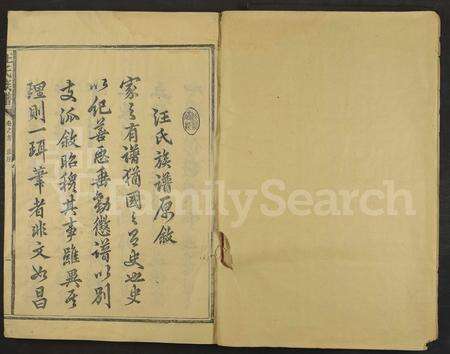 汪氏族譜原敘
家之有譜猶國之有史也史
以紀善惡垂勸懲譜以別
支派敘昭穆其事雖異其
理則一珥筆者非文如昌
FamilySearch